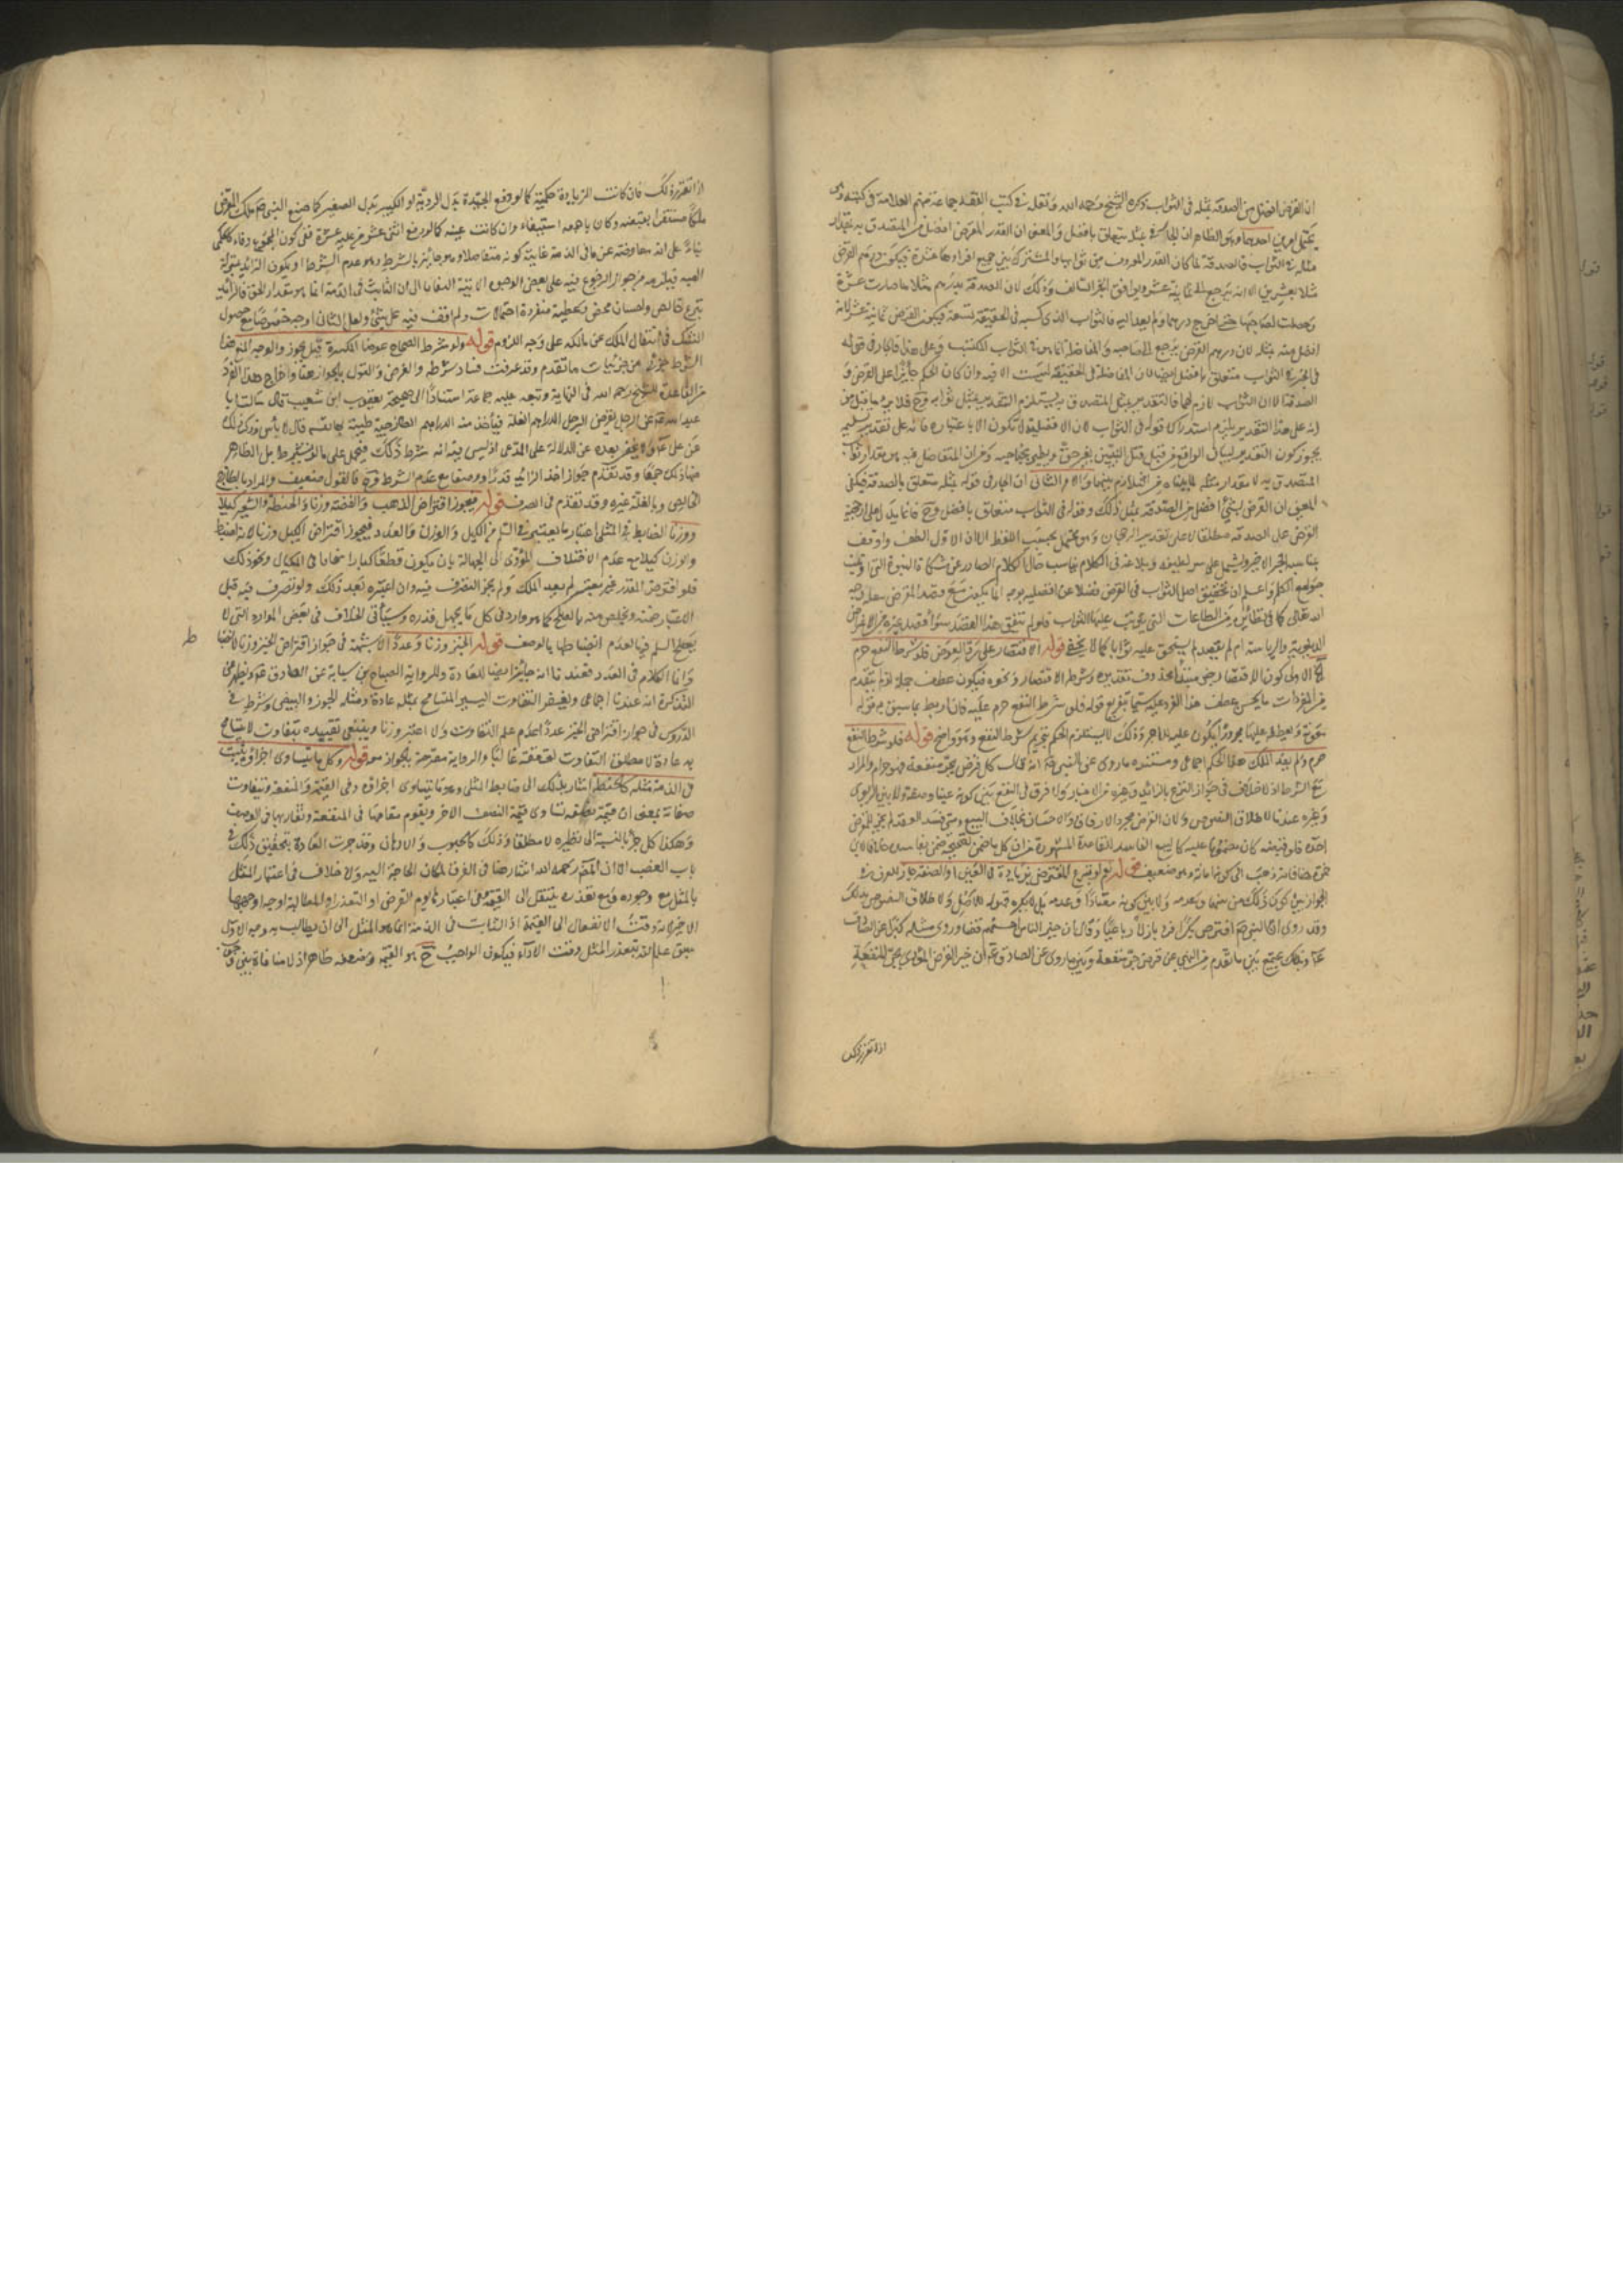 ان القرض افضل من الصدقة بمثله فى الثواب ذكره الشيخ رحمه الله ونقله فى كتب الفقه جماعة منهم العلامة فى كتبه وهو
يحتمل امرين احدهما وهو الظاهر ان الجار فى بمثله يتعلق بافضل والمعنى ان القدر المقرض افضل من المتصدق به بمقدار
مثله فى الثواب فالصدقة لما كان القدر المعروف من ثوابها والمشترك بين جميع افرادها عشرة فيكون درهم القرض
مثلا بعشرين الا انه يرجع الى ثمانية عشر ويوافق الخبر السالف وذلك لان الصدقة بدرهم مثلا ما صارت عشرة
وحصلت لصاحبها حتى اخرج درهما ولم يعد اليه فالثواب الذى كسبه فى الحقيقة تسعة فيكون القرض ثمانية عشر لانه
افضل منه بمثله لان درهم القرض يرجع الى صاحبه والمفاضلة انما هى فى الثواب المكتسب وعلى هذا فالجار فى قوله
فى الخبر فى الثواب متعلق بافضل ايضا لان المفاضلة فى الحقيقة ليست الا فيه وان كان الحكم جائزا على القرض و
الصدقة الا ان الثواب لازم لهما فالتقدير بمثل المتصدق به يستلزم التقدير بمثل ثوابه وح فلا يرد ما قيل من
انه على هذا التقدير يلزم استدراك قوله فى الثواب لان الافضلية لا تكون الا باعتباره فانه على تقدير تسليمه
يجوز كون التقدير لبيان الواقع من قبيل قتل النبيين بغير حق ويطير بجناحيه وعن ان المتفاضل فيه هو مقدار ثواب
المتصدق به لا مقدار مثله لما بيناه من التلازم بينهما والامر الثانى ان الجار فى قوله بمثله متعلق بالصدقة فيكون
المعنى ان القرض بشئ افضل من الصدقة بمثل ذلك وقوله فى الثواب متعلق بافضل وح فانما يدل على ارجحية
القرض على الصدقة مطلقا لا على تقدير الرجحان وهو محتمل بحسب اللفظ الا ان الاول الطف واوفق
بمناسبة الخبر الاخير وليشتمل على سر لطيف وبلاغة فى الكلام يناسب حال الكلام الصادر عن مشكاة النبوة التى اوتيت
جوامع الكلم واعلم ان تحقيق اصل الثواب فى القرض فضلا عن افضليته انما يكون مع قصد المقرض بفعله وجه
الله تعالى كما فى نظائره من الطاعات التى يترتب عليها الثواب فلو لم يتفق هذا القصد سواء قصد غيره من الاغراض
الدنيوية والرياسة ام لم يقصد لم يستحق عليه ثوابا كما لا يخفى قوله الاقتصار على رد العوض فلو شرط النفع حرم
الاولى كون الاقتصار مبتدأ محذوف تقديره وشرطه الاقتصار ونحوه فيكون عطف جملة اذ لم يتقدم
من المفردات ما يحسن عطف هذا الفرد عليه سيما بتفريع قوله فلو شرط النفع حرم عليه فانه اربط بما سبق من قوله
حرم ولم يفد الملك هذا الحكم اجماعى ومستنده ما روى عن النبى انه قال كل قرض يجر منفعة فهو حرام والمراد
مع الشرط اذ لا خلاف فى جواز التبرع بالزائد وغيره من الاخبار ولا فرق فى النفع بين كونه عينا وصفة ولا بين الربوى
وغيره عندنا لاطلاق النصوص ولان القرض مجرد الارفاق والاحسان بخلاف البيع ومتى فسد العقد لم يجز للمقترض
اخذه فلو قبضه كان مضمونا عليه كالبيع الفاسد للقاعدة المشهورة من ان كل ما ضمن بصحيحه ضمن بفاسده خلافا لابن
حمزة فانه ذهب الى كونه امانة وهو ضعيف قوله نعم لو تبرع المقترض بزيادة فى العين او الصفة جاز لا فرق فى
الجواز بين كون ذلك من نيتهما وعدمه ولا بين كونه معتادا وعدمه بل لا يكره قبوله للاصل ولاطلاق النصوص بذلك
وقد روى ان النبى اقترض بكرا فرد بازلا رباعيا وقال ان خير الناس احسنهم قضاء وروى مثله كثيرا عن الصادق
وبذلك يجمع بين ما تقدم من النهى عن قرض يجر منفعة وبين ما روى عن الصادق ان خير القرض الذى يجر المنفعة
اذا تقرر ذلك
اذا تقرر ذلك فان كانت الزيادة حكمية كما لو دفع الجيدة بدل الردية او الكبير بدل الصغير كما صنع النبى ملك المقرض
ملكا مستقرا بقبضه وكان باجمعه استيفاء وان كانت عينية كما لو دفع اثنى عشر من عليه عشرة ففى كون المجموع وفاء كالحكمى
بناء على انه معاوضة عن ما فى الذمة غايته كونه متفاضلا وهو جائز بالشرط وهو عدم الشرط او يكون الزائد بمنزلة
الهبة فيلزمه من جواز الرجوع فيه على بعض الوجوه الآتية التفاتا الى ان الثابت فى الذمة انما هو مقدار الحق فالزائد
تبرع خالص واحسان محض وعطية منفردة احتمالات ولم اقف فيه على شئ ولعل الثانى اوجه خصوصا مع حصول
الشك فى انتقال الملك عن مالكه على وجه اللزوم قوله ولو شرط الصحاح عوض المكسرة قيل يجوز والوجه المنع هذا
الشرط جزئى من جزئيات ما تقدم وقد عرفت فساد شرطه والقرض والقول بالجواز هنا واخراج هذا الفرد
من القاعدة للشيخ رحمه الله فى النهاية وتبعه عليه جماعة استنادا الى صحيحة يعقوب ابن شعيب قال سالت ابا
عبد الله عن الرجل يقرض الرجل الدراهم الغلة فيأخذ منه الدراهم الطازجية طيبة بها نفسه قال لا بأس وذكر ذلك
عن على ولا يخفى بعده عن الدلالة على المدعى اذ ليس فيه انه شرط ذلك فيحمل على ما لو لم يشترط بل الظاهر
منها ذلك جمعا وقد تقدم جواز اخذ الزائد قدرا ووصفا مع عدم الشرط فالقول ضعيف والمراد بالطازج
الخالص وبالغلة غيره وقد تقدم فى الصرف قوله فيجوز اقتراض الذهب والفضة وزنا والحنطة والشعير كيلا
ووزنا الضابط فى المثلى اعتبار ما يعتبر فى السلم من الكيل والوزن والعدد فيجوز اقتراض الكيل وزنا لانه اضبط
والوزن كيلا مع عدم الاختلاف المؤدى الى الجهالة بان يكون قطعا كبارا تتجافى فى المكيال ونحو ذلك
فلو اقترض المقدر غير معتبر لم يفد الملك ولم يجز التصرف فيه وان اعتبره بعد ذلك ولو تصرف فيه قبل
الاعتبار ضمنه ويخلص منه بالصلح كما هو وارد فى كل ما يجهل قدره وسيأتى الخلاف فى بعض الموارد التى لا
يصح السلم فيها لعدم انضباطها بالوصف قوله الخبز وزنا وعددا لا شبهة فى جواز اقتراض الخبز وزنا لانضباطه
ط
وانما الكلام فى العدد فعندنا انه جائز ايضا للعادة وللرواية الصباح بن سيابة عن الصادق ويظهر من
التذكرة انه عندنا اجماعى ويغتفر التفاوت اليسير المتسامح بمثله عادة ومثله الجوز والبيض وشرط فى
الدروس فى جواز اقتراض الخبز عددا عدم علم التفاوت والا اعتبر وزنا وينبغى تقييده بتفاوت لا يتسامح
به عادة لا مطلق التفاوت لتحققه غالبا والرواية مصرحة بالجواز معه قوله وكل ما يتساوى اجزاؤه يثبت
فى الذمة مثله كالحنطة اشار بذلك الى ضابط المثلى وهو ما يتساوى اجزاؤه فى القيمة والمنفعة ويتفاوت
صفاته بمعنى ان قيمة نصفه تساوى قيمة النصف الآخر ويقوم مقامها فى المنفعة وتقاربها فى الوصف
وهكذا كل جزء بالنسبة الى نظيره لا مطلقا وذلك كالحبوب والادهان وقد جرت العادة بتحقيق ذلك فى
باب الغصب الا ان المصنف رحمه الله اشار هنا فى القرض لمكان الحاجة اليه ولا خلاف فى اعتبار المثل
بالمثل مع وجوده ومع تعذره ينتقل الى القيمة فى اعتبارها يوم القرض او التعذر او المطالبة اوجه اوجهها
الاخير لانه وقت الانتقال الى القيمة اذ الثابت فى الذمة انما هو المثل الى ان يطالب به وجه الاول
سبق علم الله بتعذر المثل وقت الاداء فيكون الواجب ح هو القيمة وضعفه ظاهر اذ لا منافاة بين